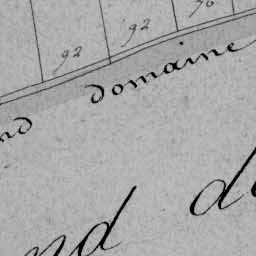 92 92
nd domaine
nd d